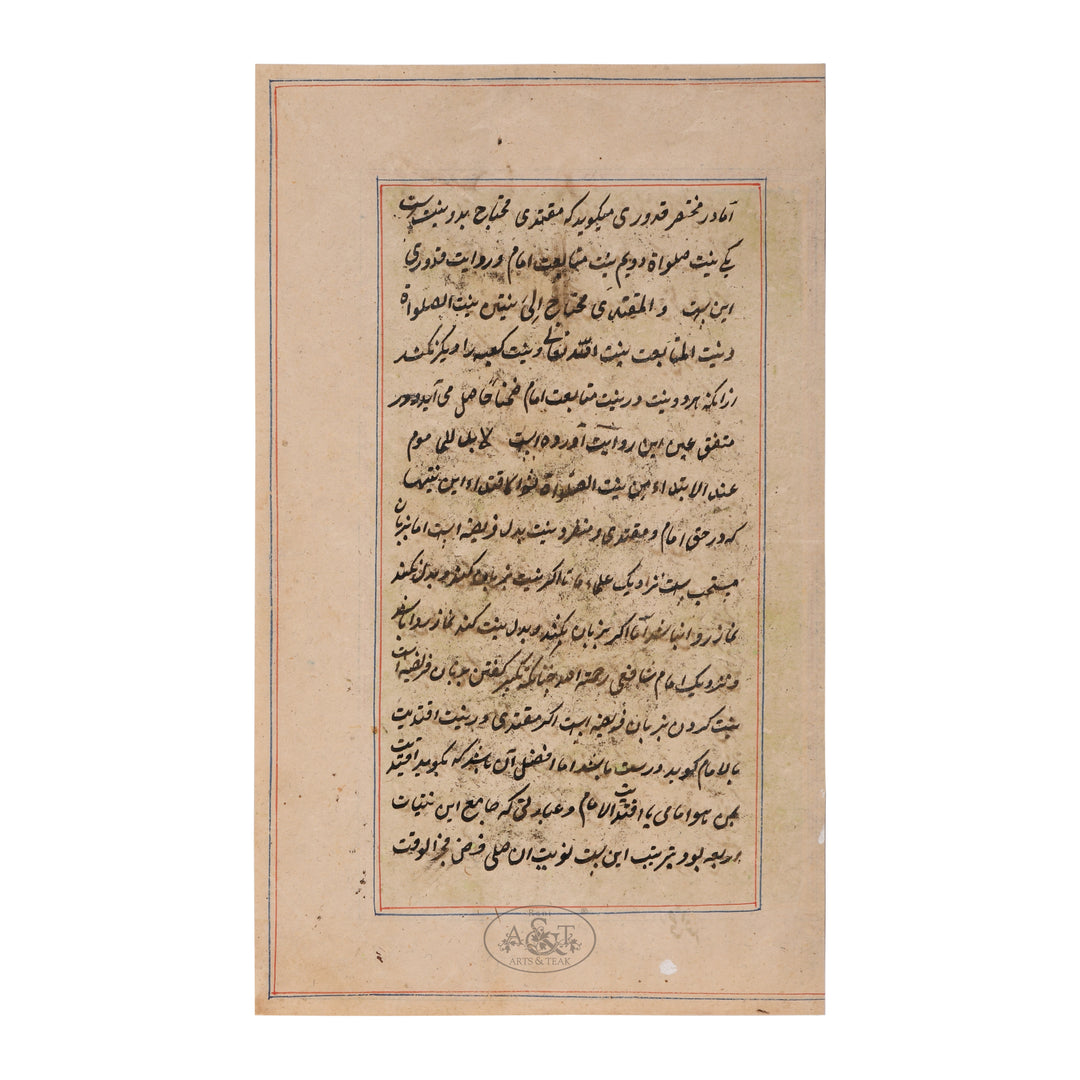 اما در مختصر قدوری میگوید که مقتدی محتاج بدو نیت است
یکی نیت صلواة دویم نیت متابعت امام و روایت قدوری
این است والمقتدی محتاج الی نیتین نیت الصلواة
و نیت المتابعت نیت اقتد تعالی و نیت کعبه را دیگر نکند
از انکه هر دو نیت در نیت متابعت امام ضمناً حاصل می آید و در
متفق عین این روایت آورده است لابد للمموم
عند الابتداء من نیت الصلواة این نیتها
که در حق امام و مقتدی و منفرد نیت بدل فریضه است اما بزبان
مستحب است نزدیک علماء ما تا اگر نیت بزبان کند و بدل نکند
نماز روا نباشد اما اگر بزبان نکند و بدل نیت کند نماز روا باشد
و نزدیک امام شافعی رحمة الله چنانکه تکبیر گفتن بزبان فریضه است
نیت کردن بزبان فریضه است اگر مقتدی در نیت اقتدیت
بالامام گوید درست باشد اما افضل آن باشد که بگوید اقتدیت
بمن هو امامی یا اقتدیت الامام و عبارتی که جامع این نیات
بود این است نویت ان اصلی فرض فجر الوقت
Rani
A&T
ARTS & TEAK